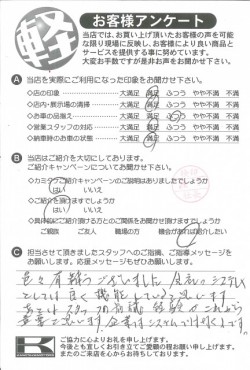 軽
お客様アンケート
当店では、お買い上げ頂いたお客様の声を可能
な限り現場に反映し、お客様により良い商品と
サービスを提供する事に努めています。
大変お手数ですが是非お声をお聞かせ下さい。
A 当店を実際にご利用になった印象をお聞かせ下さい。
◇店の印象 大満足 満足 ふつう やや不満 不満
◇店内・展示場の清掃 大満足 満足 ふつう やや不満 不満
◇お車の品揃え 大満足 満足 ふつう やや不満 不満
◇営業スタッフの対応 大満足 満足 ふつう やや不満 不満
◇納車時のお車の状態 大満足 満足 ふつう やや不満 不満
B 当店はご紹介を大切にしております。
ご紹介キャンペーンについてお聞かせ下さい。
◇カミタケご紹介キャンペーンのご説明はありましたでしょうか
はい いいえ
◇ご紹介を頂けますでしょうか
はい いいえ
◇具体的にご紹介頂ける方とのご関係をお聞かせ頂けますでしょうか
ご親族 ご友人 職場の方 機会があれば紹介したい
C 担当させて頂きましたスタッフへのご指摘、ご指導メッセージを
お願いします。応援メッセージもぜひお願いします。
色々有難うございました
としては良く機能していると思います
あとはスタッフの知識 経験がこれから
重要と思います。企業はシステムでは
ご協力に心よりお礼を申し上げます。
今後とも宜しくお引き立てご愛顧の程お願い申し上げます。
またのご来店を心からお待ちしております。